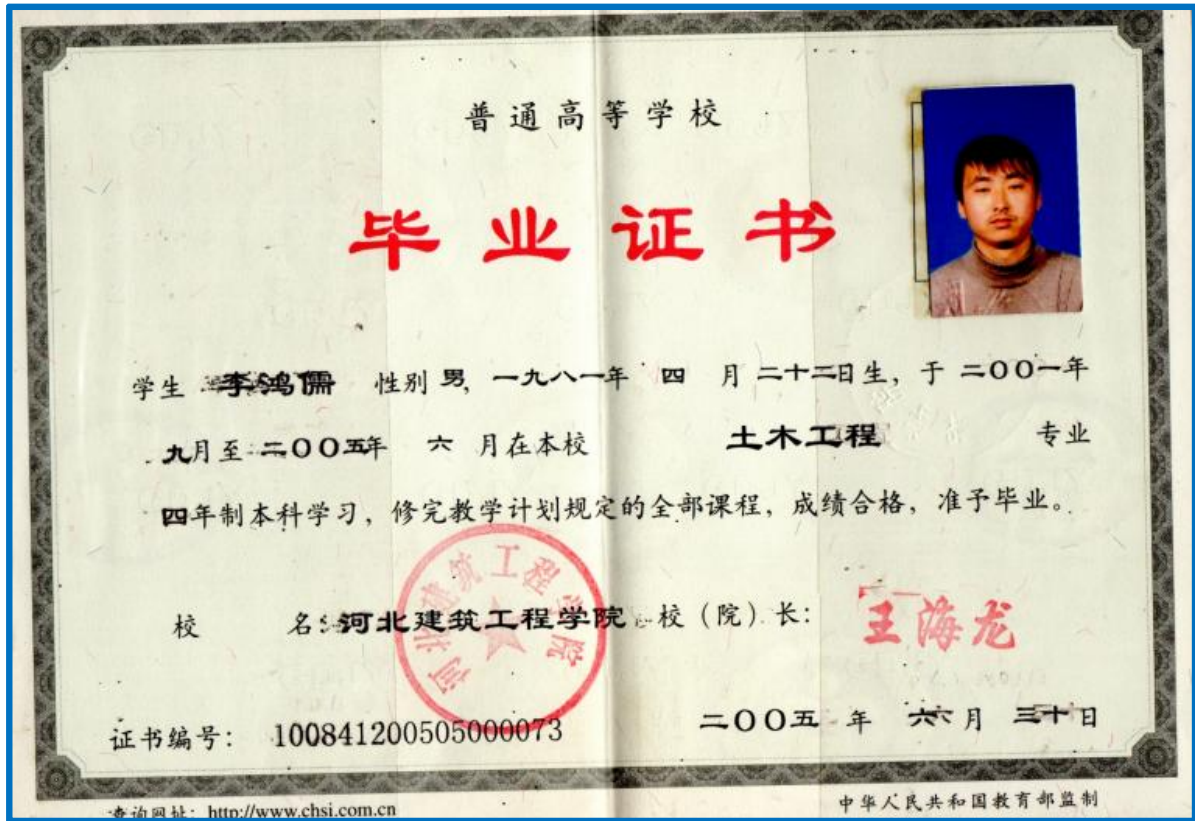 普通高等学校
毕业证书
学生 李鸿儒 性别 男, 一九八一年 四 月 二十二日生, 于 二〇〇一年
九月至 二〇〇五年 六 月在本校 土木工程 专业
四年制本科学习, 修完教学计划规定的全部课程, 成绩合格, 准予毕业。
校 名: 河北建筑工程学院 校 (院) 长: 王海龙
河北建筑工程学院
二〇〇五 年 六 月 三十日
证书编号: 100841200505000073
查询网址: http://www.chsi.com.cn
中华人民共和国教育部监制